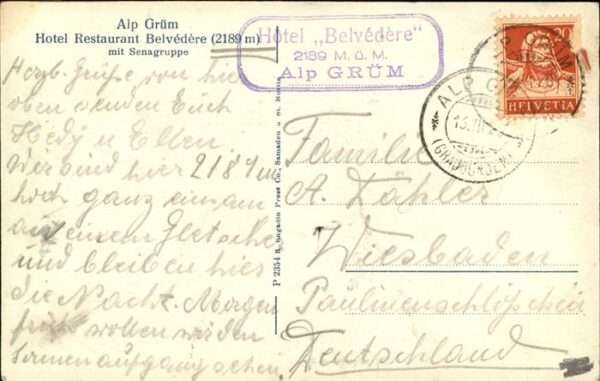 Alp Grüm
Hotel Restaurant Belvédère (2189 m)
mit Senagruppe
Hôtel „Belvédère"
2189 M. ü. M.
Alp GRÜM
20
HELVETIA
ALP GRÜM
(GRAUBÜNDEN)
Herzl. Grüße von hier
oben senden Euch
Hedy u Ellen.
Wir sind hier 2189 m
hoch ganz einsam
an einem Gletscher
und bleiben hier
die Nacht. Morgen
früh wollen wir den
Sonnenaufgang sehen.
P 2354 B. Engadin Press Co., Samaden
Familie
A. Zähler
Wiesbaden
Paulinenschlößchen
Deutschland